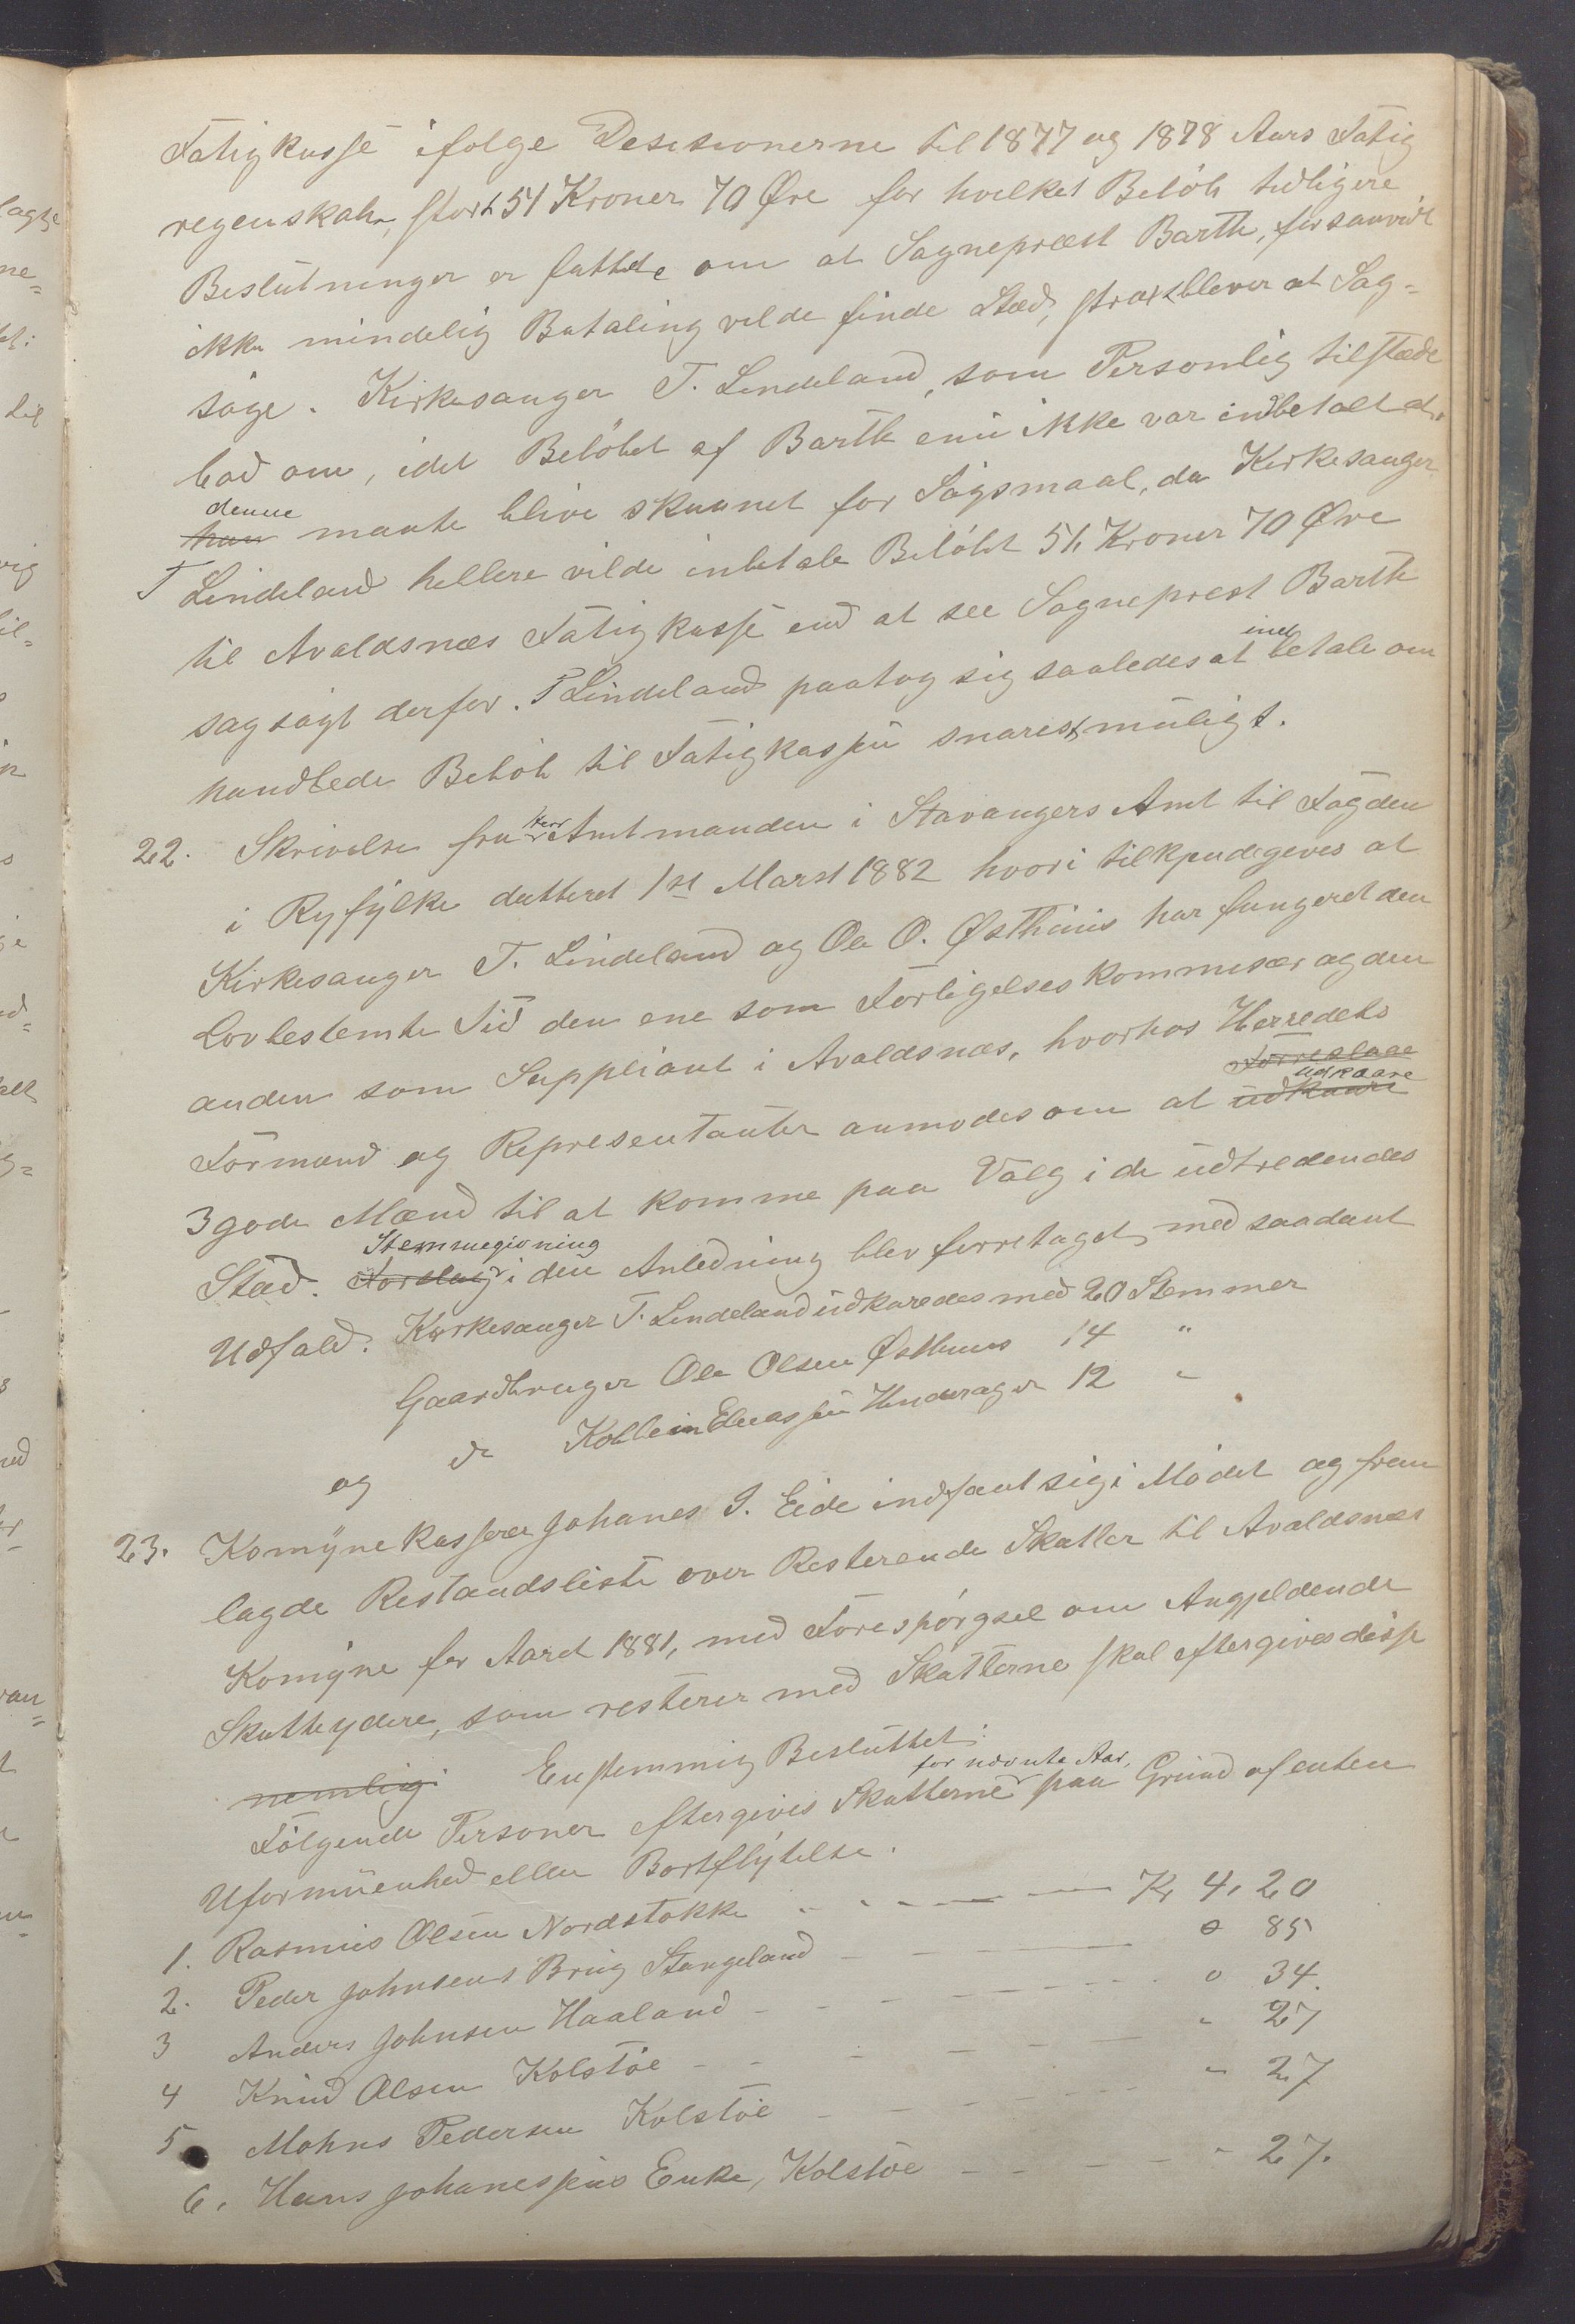 Fatigkasse ifølge Desisionerne til 1877 og 1878 Aars Fatig
regenskab, stort 51 Kroner 70 Øre for hvilket Beløb tidligere
Beslutninger er fattede om at Sagneprest Barth, forsaavidt
ikke mindelig Bataling vilde finde Stæd, strax blever at Sag=
søge. Kirkesanger T. Lindeland, som Personlig tilstæde
bad om, idet Beløbet af Barth enu ikke var indbetalt at
denne
han maate blive skaanet for Søgsmaal, da Kirkesanger
T Lindeland hellere vilde inbetale Beløbet 51 Kroner 70 Øre
til Avaldsnæs Fatigkasse end at see Sagneprest Barth
sagsøgt derfor. T Lindeland paatog sig saaledes at indbetale om
handlede Beløb til Fatigkassen snarest muligt.
22. Skrivelse fra Herr Amtmanden i Stavangers Amt til Fogden
i Ryfylke datteret 1st Marst 1882 hvori tilkjendegeves at
Kirkesanger T. Lindeland og Ole O. Østhuus har fungeret den
Lovbestemte Tid den ene som Forligelseskommisær og den
anden som Suppliant i Avaldsnæs, hvorhos Herredets
Formand og Representanter anmodes om at Forreslaae udkaare udkaare
3 gode Mænd til at komme paa Valg i de udtredendes
Stæd. Forslag Stemmegivning i den Anledning blev forretaget, med saadant
Udfald. Kirkesanger T. Lindeland udkaredes med 20 Stemmer
Gaardbruger Ole Olsen Østhuus 14 "
og do Kolbein Eliassen Hinderager 12 "
23. Komyne kasserer Johanes J. Eide indfant sig i Mødet og frem
lagde Restandsliste over Resterende Skatter til Avaldsnæs
Komyne for Aaret 1881, med Forespørgsel om Angjeldende
Skatteydere, som resterer med Skatterne skal eftergives disse
nemlig: Enstemmig Besluttet:
Følgende Personer eftergives Skatterne for nævnte Aar, paa Grund af enten
Uformuenhed eller Bortflytelse.
1. Rasmus Olsen Nordstokke Kr 4,20
2. Peder Johnsens Brug Stangeland 0 85
3 Anders Johnsen Haaland 0 34.
4 Knud Olsen Kolstøe " 27
5 Mohns Pedersen Kolstøe " 27
6. Hans Johanessens Enke, Kolstøe " 27.